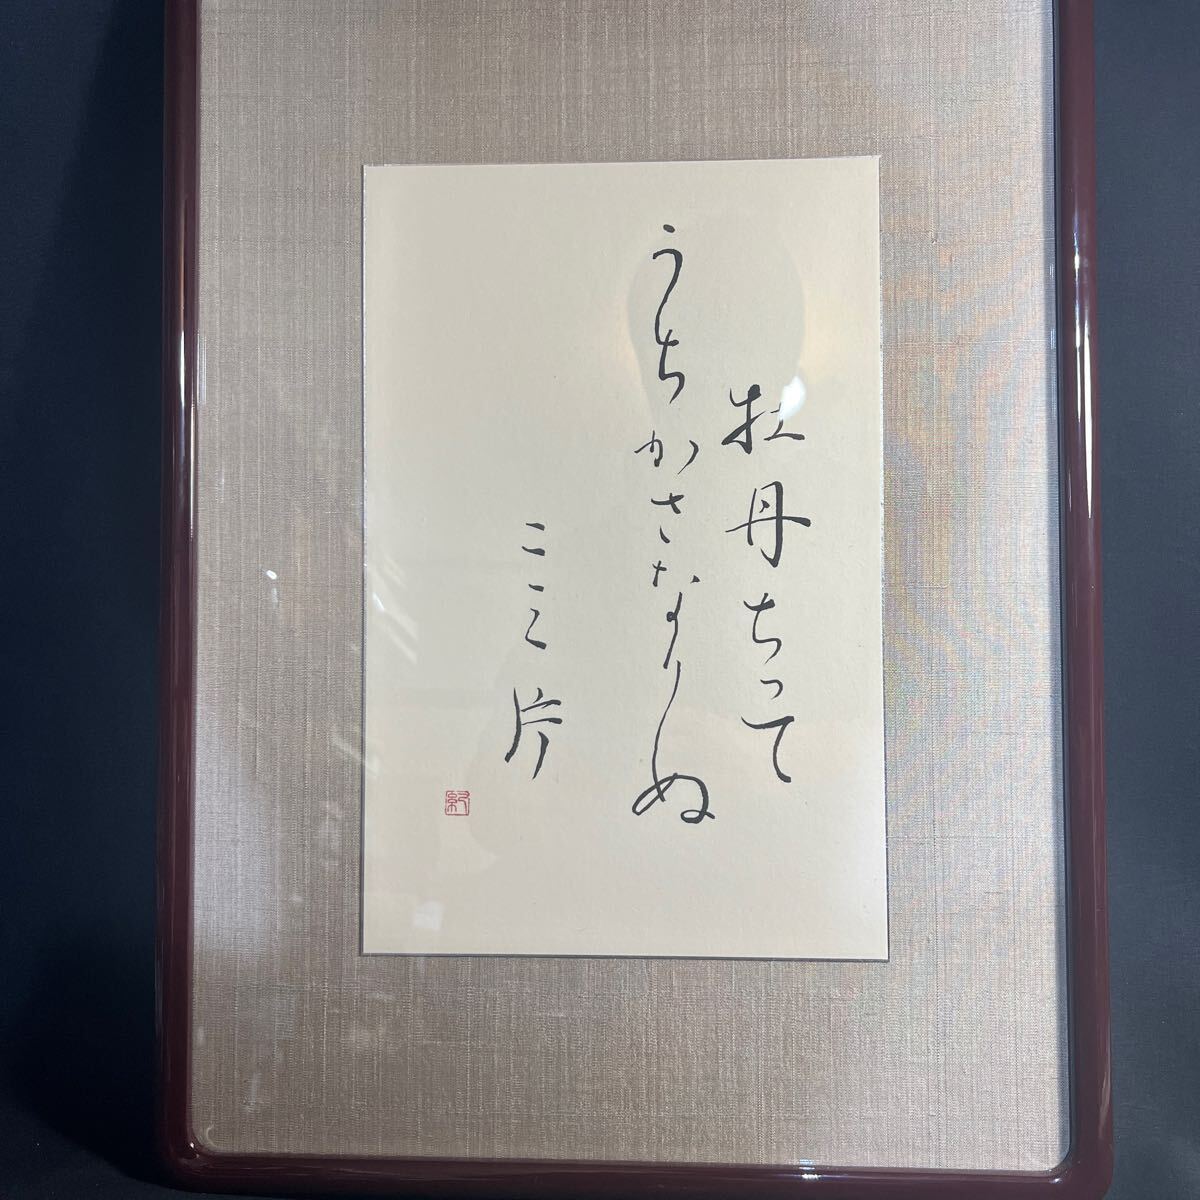 牡丹ちって
うちかさなりぬ
二三片
紀